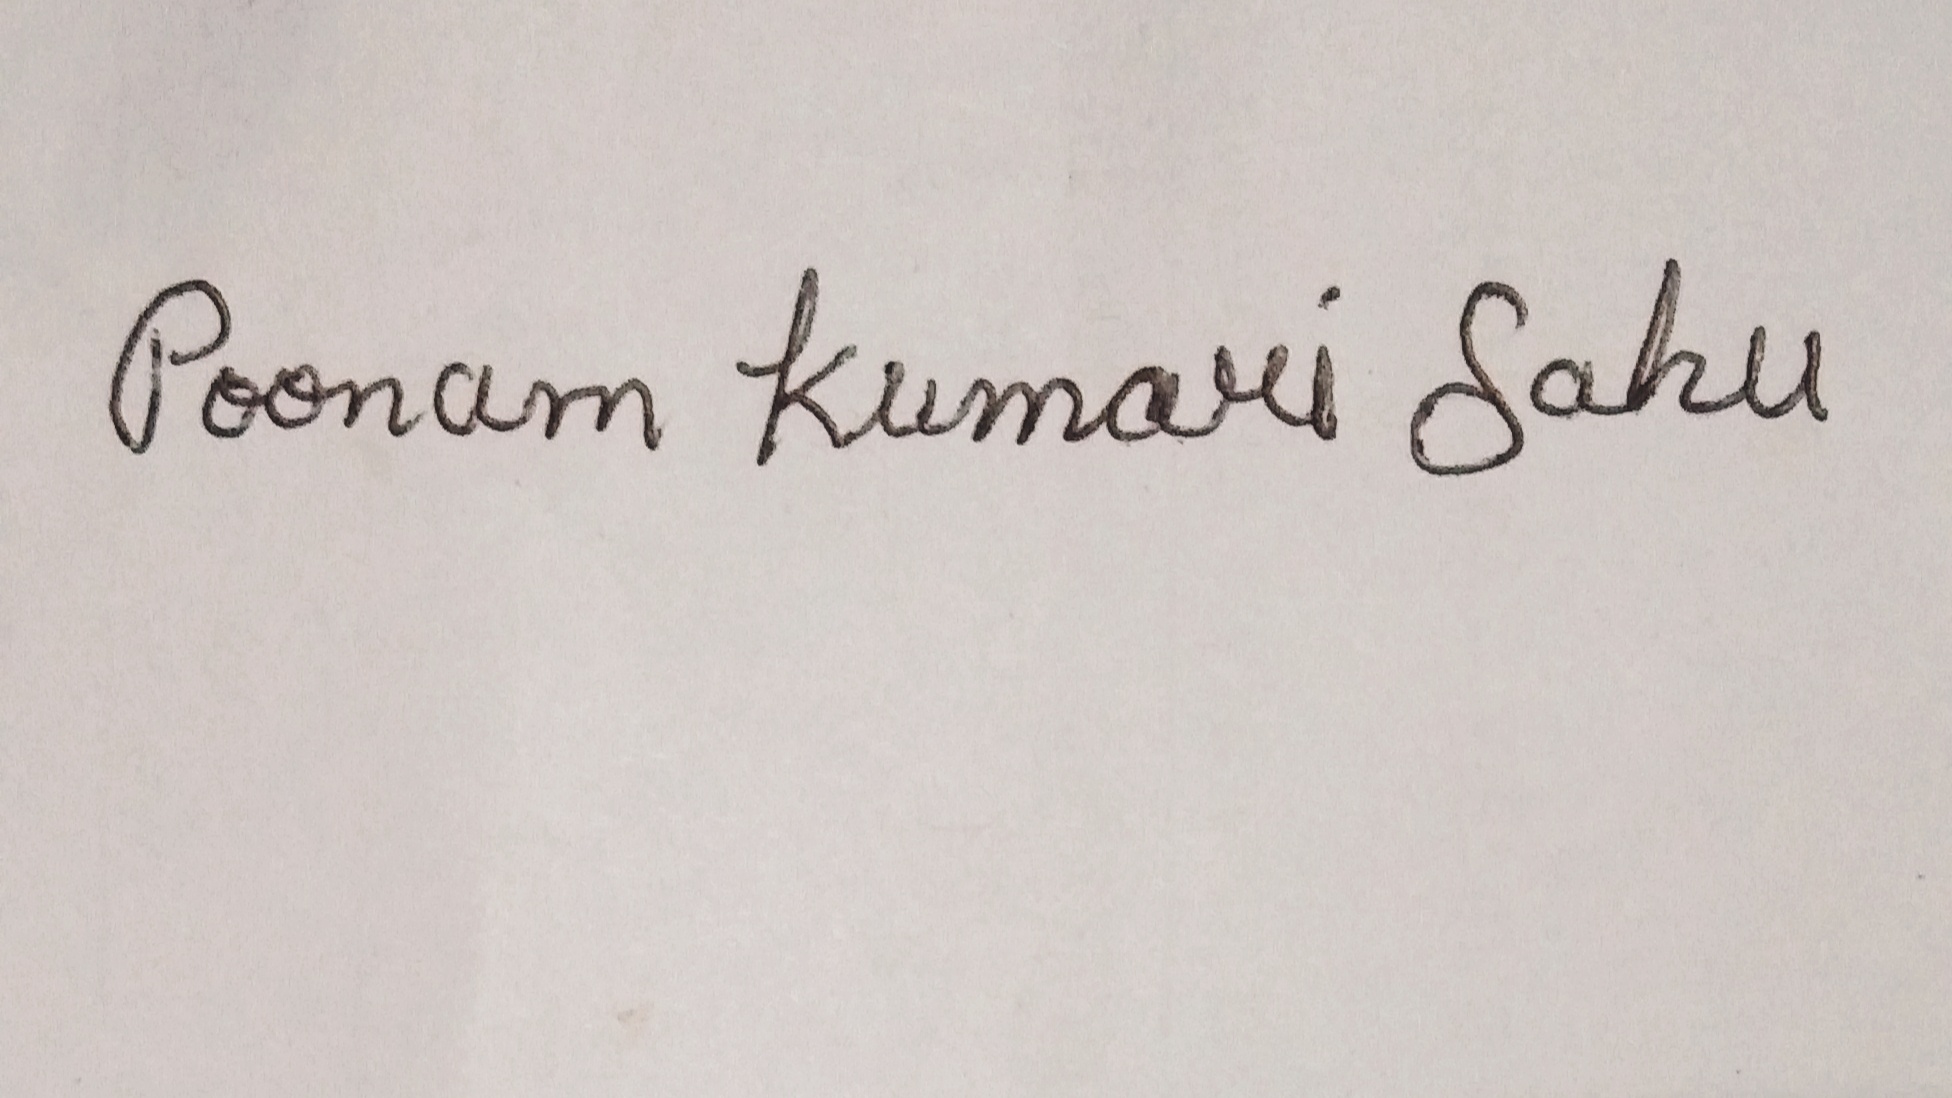 Poonam Kumari Sahu